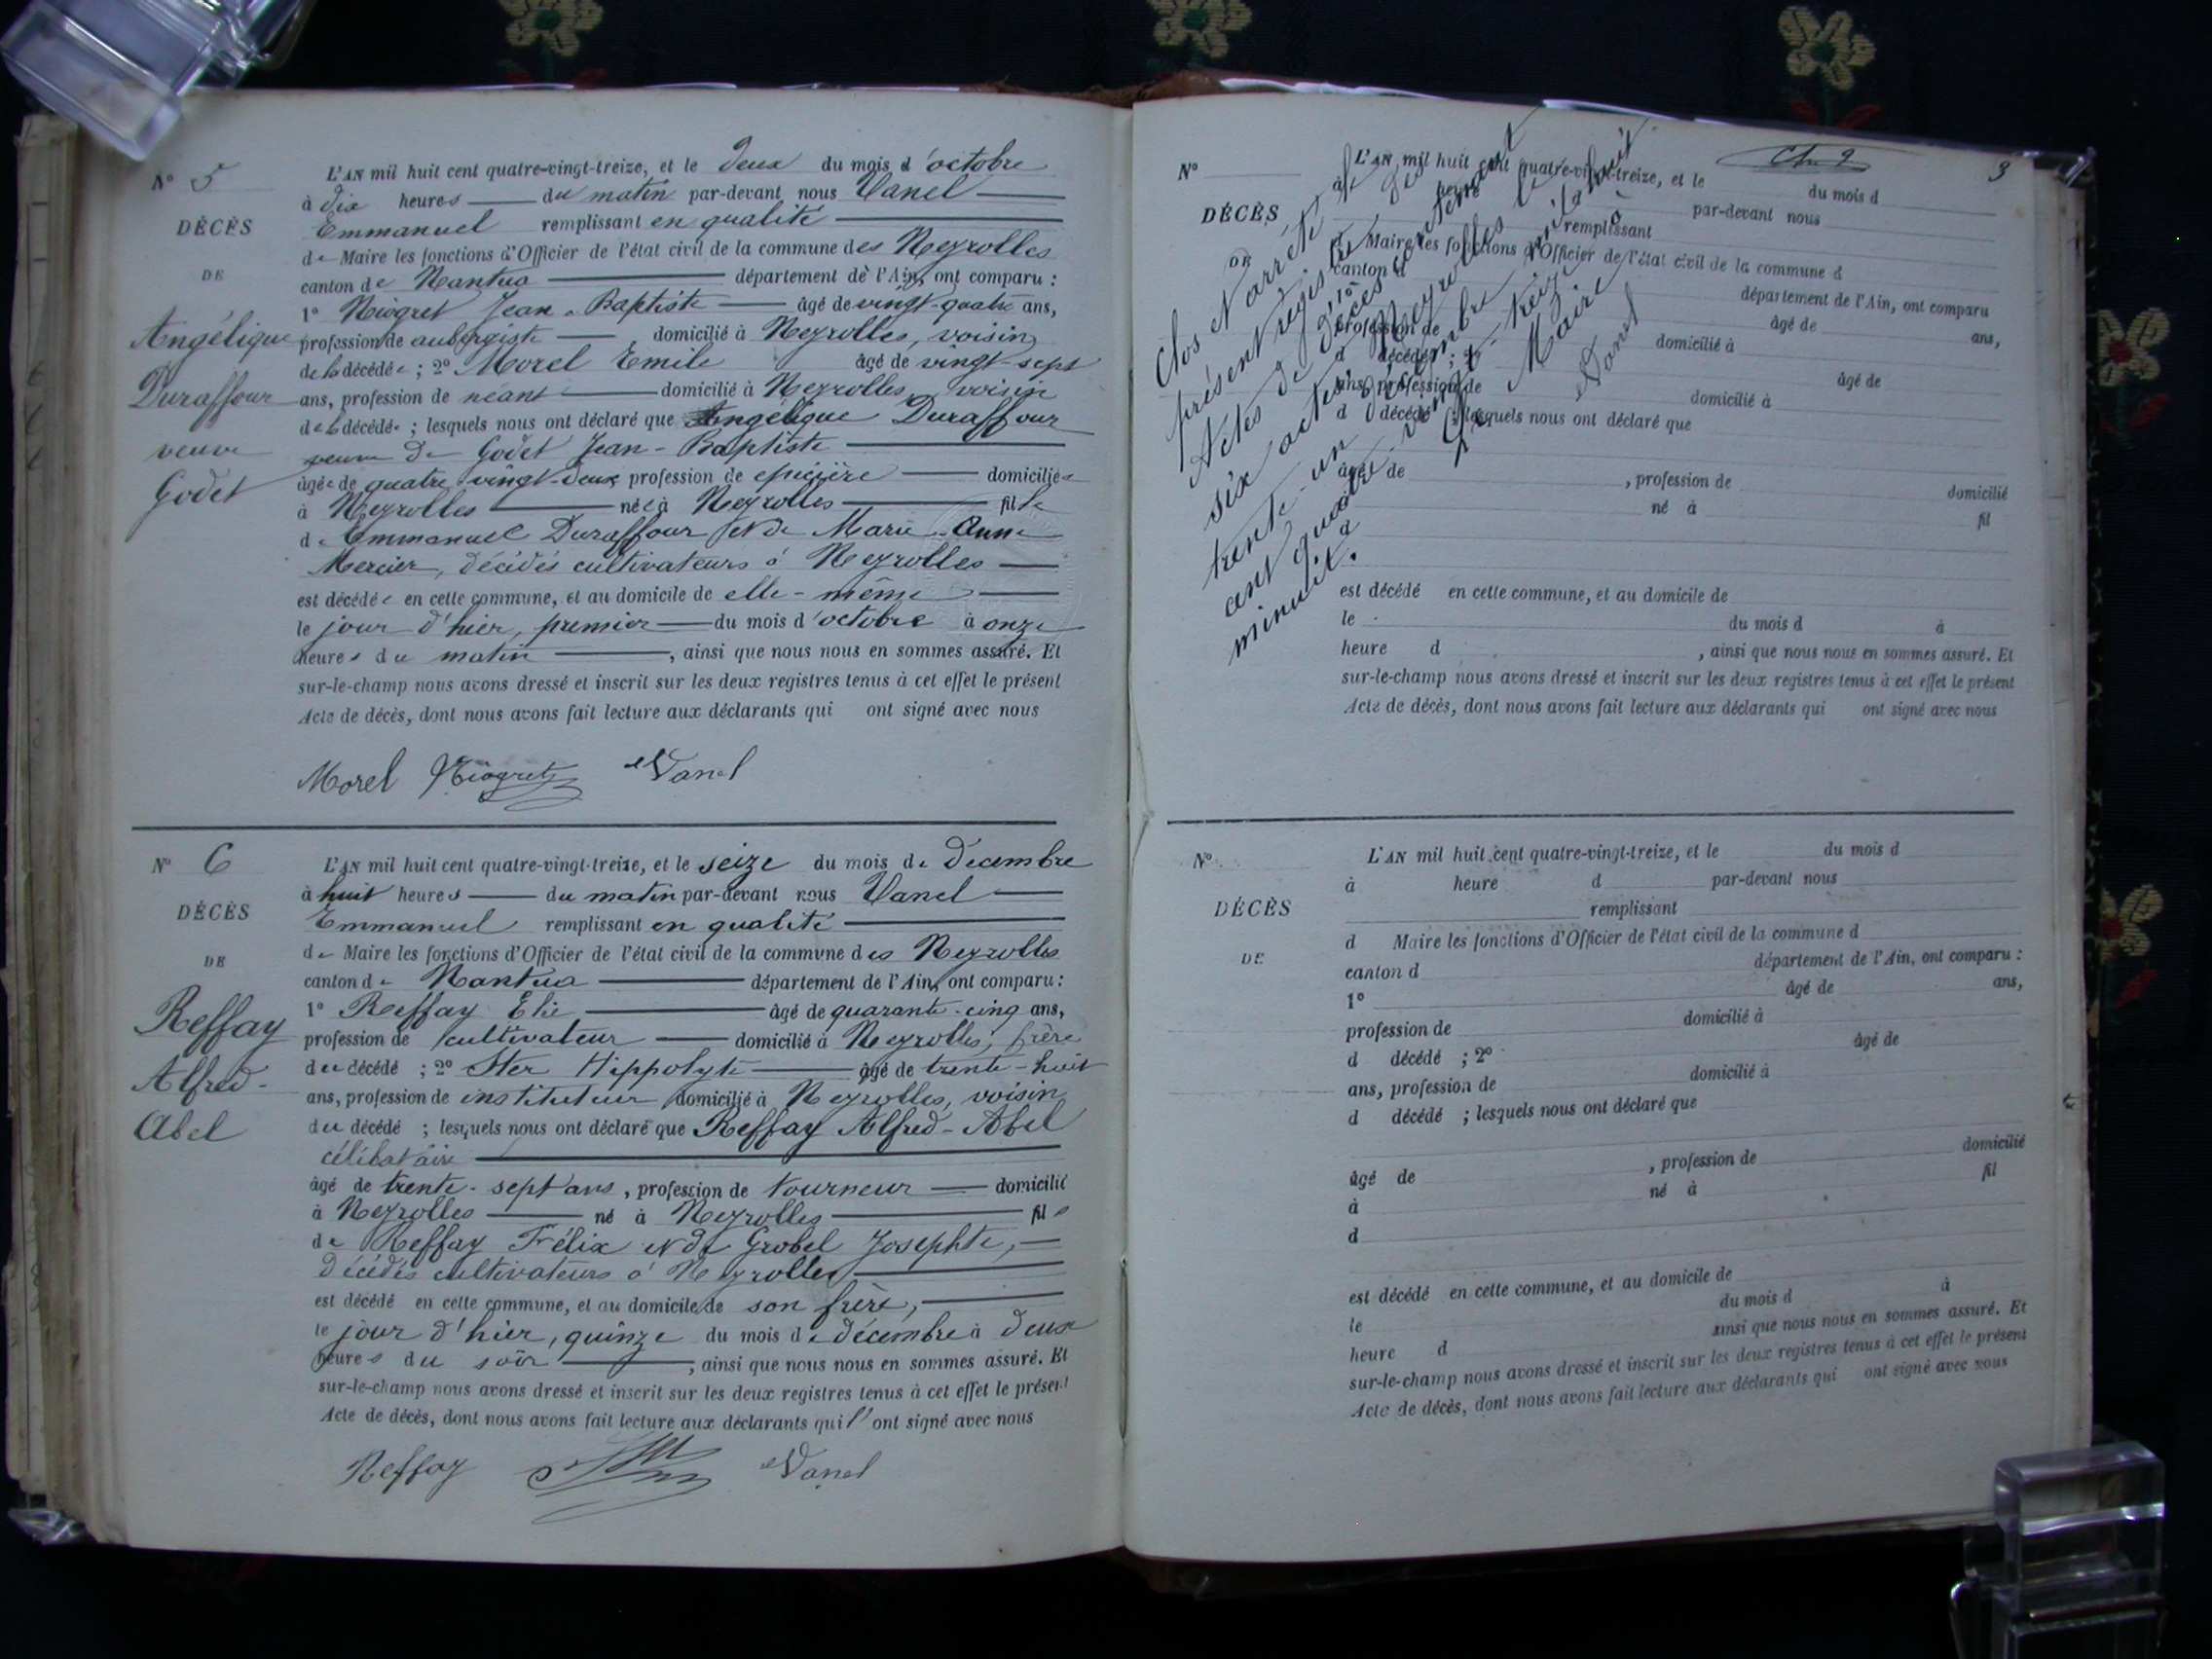 N° 5
DÉCÈS
DE
Angélique
Duraffour
veuve
Godet
L'AN mil huit cent quatre-vingt-treize, et le deux du mois d'octobre
à dix heures du matin par-devant nous Vanel
Emmanuel remplissant en qualité
de Maire les fonctions d'Officier de l'état civil de la commune des Neyrolles
canton de Nantua département de l'Ain, ont comparu :
1° Niogret Jean-Baptiste âgé de vingt-quatre ans,
profession de aubergiste, domicilié à Neyrolles, voisin
de la décédée ; 2° Morel Emile âgé de vingt-sept
ans, profession de néant domicilié à Neyrolles, voisin
de la décédée ; lesquels nous ont déclaré que Angélique Duraffour
veuve de Godet Jean-Baptiste
âgée de quatre-vingt-deux profession de epicière domiciliée
à Neyrolles née à Neyrolles fille
de Emmanuel Duraffour et de Marie-Anne
Mercier, décédés cultivateurs à Neyrolles
est décédée en cette commune, et au domicile de elle-même
le jour d'hier, premier du mois d'octobre à onze
heures du matin, ainsi que nous nous en sommes assuré. Et
sur-le-champ nous avons dressé et inscrit sur les deux registres tenus à cet effet le présent
Acte de décès, dont nous avons fait lecture aux déclarants qui ont signé avec nous
Morel Niogret Vanel
N° 6
DÉCÈS
DE
Reffay
Alfred-
Abel
L'AN mil huit cent quatre-vingt-treize, et le seize du mois de décembre
à huit heures du matin par-devant nous Vanel
Emmanuel remplissant en qualité
de Maire les fonctions d'Officier de l'état civil de la commune des Neyrolles
canton de Nantua département de l'Ain, ont comparu :
1° Reffay Elie âgé de quarante-cinq ans,
profession de cultivateur domicilié à Neyrolles, frère
du décédé ; 2° Ster Hippolyte âgé de trente-huit
ans, profession de instituteur domicilié à Neyrolles, voisin
du décédé ; lesquels nous ont déclaré que Reffay Alfred-Abel
célibataire
âgé de trente-sept ans, profession de tourneur domicilié
à Neyrolles né à Neyrolles fils
de Reffay Félix et de Grobel Josephte,
décédés cultivateurs à Neyrolles
est décédé en cette commune, et au domicile de son frère,
le jour d'hier, quinze du mois de décembre à deux
heures du soir, ainsi que nous nous en sommes assuré. Et
sur-le-champ nous avons dressé et inscrit sur les deux registres tenus à cet effet le présent
Acte de décès, dont nous avons fait lecture aux déclarants qui ont signé avec nous
Reffay Vanel
3
Clos et arrêté le
présent registre des
Actes de décès contenant
six actes, à Neyrolles le
trente-un décembre mil huit
cent quatre-vingt-treize à
minuit.
Le Maire
Vanel
N°
DÉCÈS
DE
L'AN mil huit cent quatre-vingt-treize, et le du mois d
à heure d par-devant nous
remplissant
d Maire les fonctions d'Officier de l'état civil de la commune d
canton d département de l'Ain, ont comparu
1° âgé de ans,
profession de domicilié à
d décédé ; 2° âgé de
ans, profession de domicilié à
d décédé ; lesquels nous ont déclaré que
âgé de , profession de domicilié
né à fil
est décédé en cette commune, et au domicile de
le du mois d à
heure d , ainsi que nous nous en sommes assuré. Et
sur-le-champ nous avons dressé et inscrit sur les deux registres tenus à cet effet le présent
Acte de décès, dont nous avons fait lecture aux déclarants qui ont signé avec nous
N°
DÉCÈS
DE
L'AN mil huit cent quatre-vingt-treize, et le du mois d
à heure d par-devant nous
remplissant
d Maire les fonctions d'Officier de l'état civil de la commune d
canton d département de l'Ain, ont comparu :
1° âgé de ans,
profession de domicilié à
d décédé ; 2° âgé de
ans, profession de domicilié à
d décédé ; lesquels nous ont déclaré que
âgé de , profession de domicilié
à né à fil
d
est décédé en cette commune, et au domicile de
le du mois d à
heure d ainsi que nous nous en sommes assuré. Et
sur-le-champ nous avons dressé et inscrit sur les deux registres tenus à cet effet le présent
Acte de décès, dont nous avons fait lecture aux déclarants qui ont signé avec nous